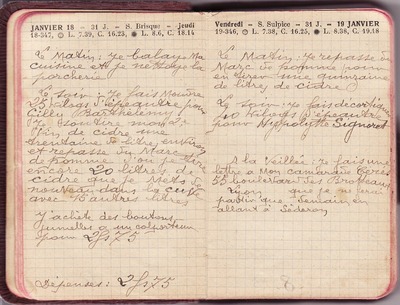 JANVIER 18 - 31 J. - S. Brisque - Jeudi
18-347, L. 7.39, C. 16.23, L. 8.6, C. 18.14
Le Matin: je balaye ma
cuisine et je nettoye la
porcherie
Le soir: je fais moudre
25 kilogs d'épeautre pour
Gilly Barthélemy
Je soutire mon
vin de cidre une
trentaine de litres environ
et repasse du Marc
de pomme d'ou je tire
encore 20 litres de
cidre que je mets de
nouveau dans la cuve
avec autres litres
J'achète des boutons
jumelles a un colporteur
pour 2fs75
Dépenses: 2fs75
Vendredi - S. Sulpice - 31 J. - 19 JANVIER
19-346, L. 7.38, C. 16.25, L. 8.38, C. 19.18
Le Matin: Je repasse du
Marc de pomme pour
en tirer une quinzaine
de litres de cidre
Le soir: je fais décortiquer
40 kilogs d'épeautre
pour Hyppolyte Signoret
A la veillée: je fais une
lettre a Mon camarade
55 boulevard des Brotteaux
Lyon que je ne ferai
partir que demain en
allant à Séderon